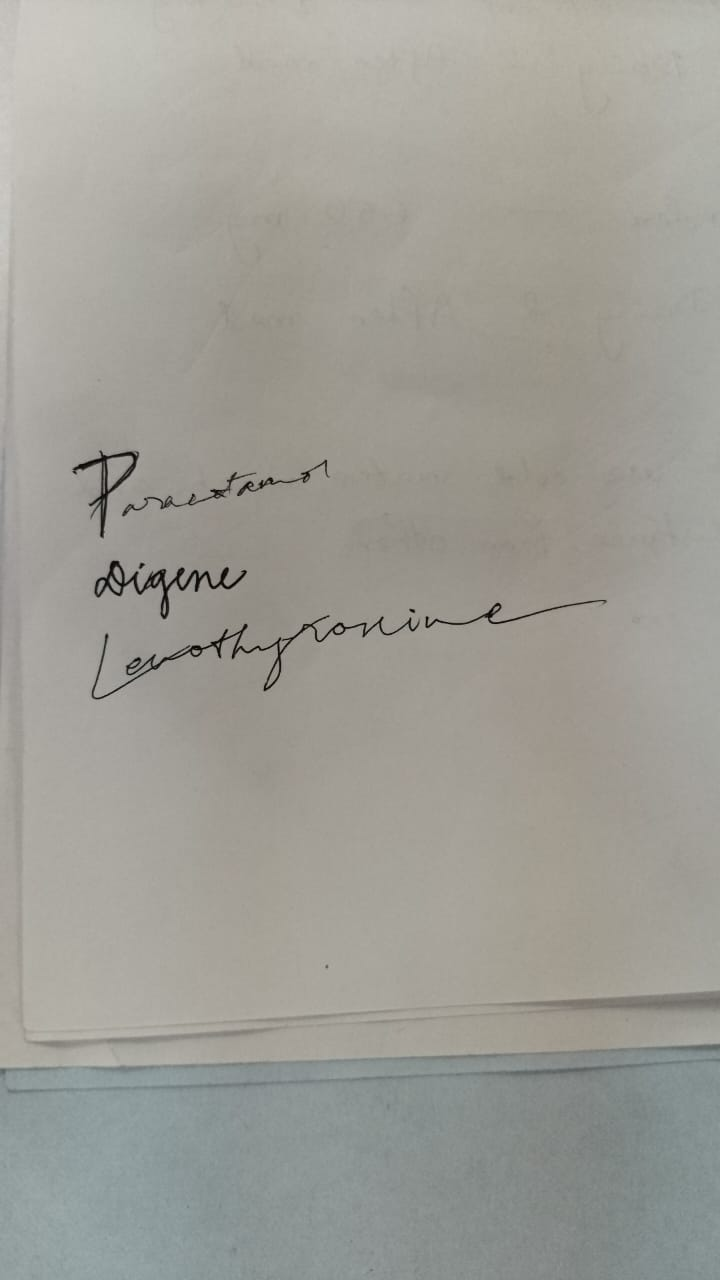 Paracetamol
Digene
Levothyroxine